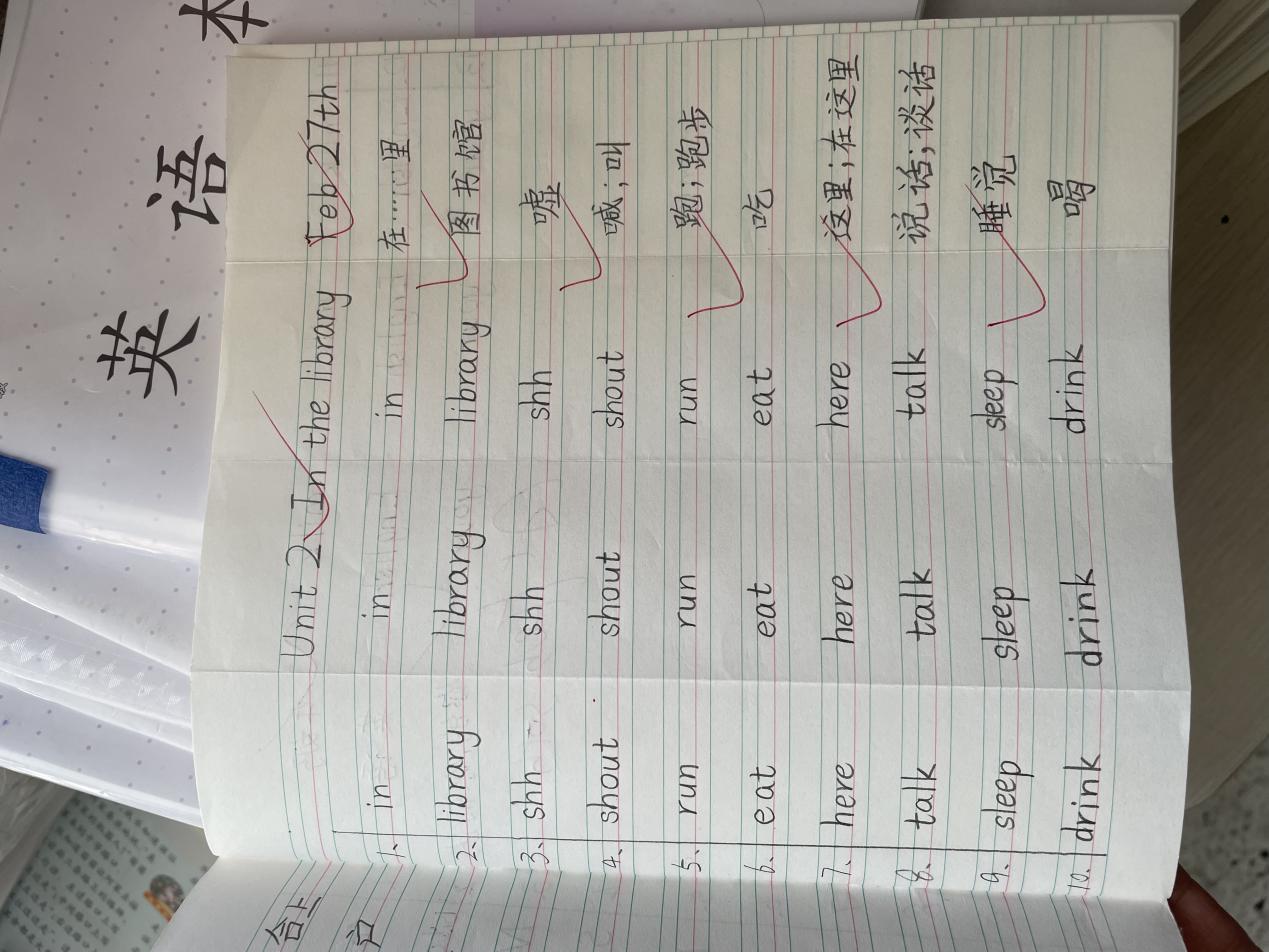 英语本
Unit 2 In the library Feb 27th
1、 in in in 在……里
2、 library library library 图书馆
3、 shh shh shh 嘘
4、 shout shout shout 喊；叫
5、 run run run 跑；跑步
6、 eat eat eat 吃
7、 here here here 这里；在这里
8、 talk talk talk 说话；谈话
9、 sleep sleep sleep 睡觉
10、 drink drink drink 喝
合上
户